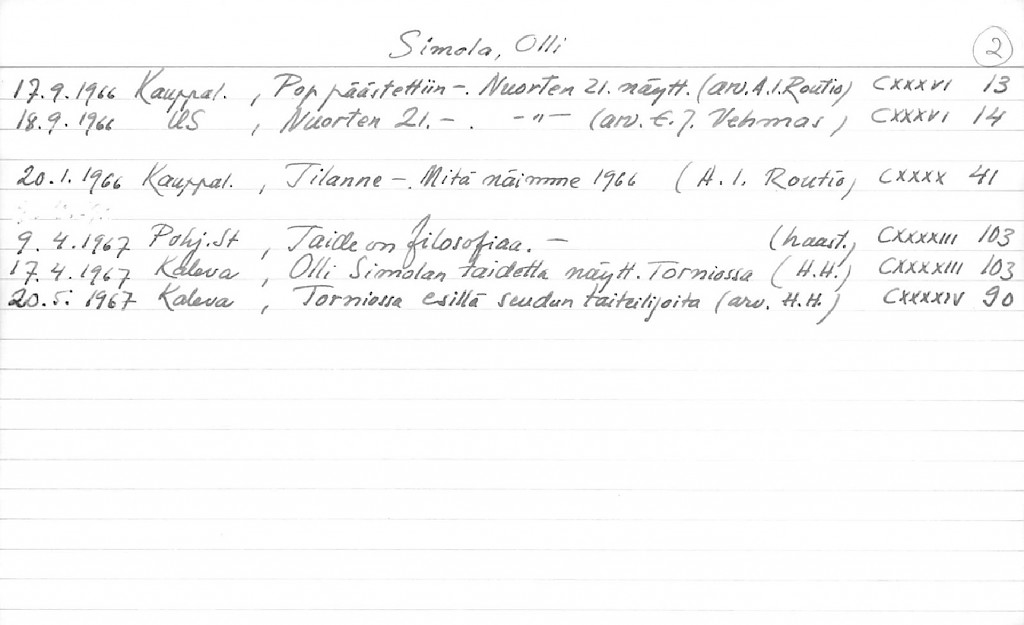 Simola, Olli 2
17.9.1966 Kauppal. , Pop päästettiin -. Nuorten 21. näytt. (arv. A.I. Routio) CXXXVI 13
18.9.1966 US , Nuorten 21. - . -"- (arv. E.J. Vehmas) CXXXVI 14
20.1.1966 Kauppal. , Tilanne -. Mitä näimme 1966 (A.I. Routio) CXXXX 41
9.4.1967 Pohj.St , Taide on filosofiaa. - (haast.) CXXXXIII 103
17.4.1967 Kaleva , Olli Simolan taidetta näytt. Torniossa (H.H.) CXXXXIII 103
20.5. 1967 Kaleva , Torniossa esillä seudun taiteilijoita (arv. H.H.) CXXXXIV 90